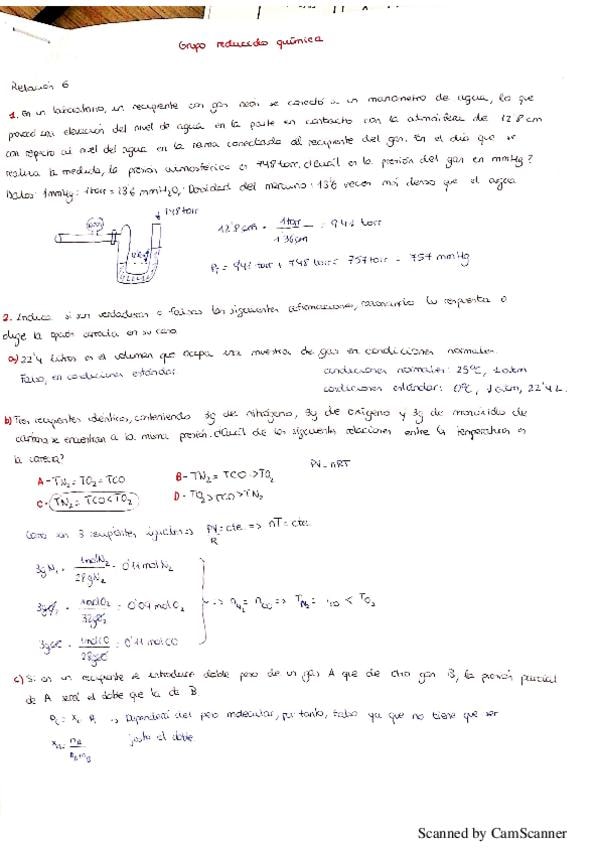 Grupo reducido química
Relación 6
1. En un laboratorio, un recipiente con gas neón se conectó a un manómetro de agua, lo que
provocó una elevación del nivel de agua en la parte en contacto con la atmósfera de 12'8 cm
con respecto al nivel del agua en la rama conectada al recipiente del gas. En el día que se
realiza la medida, la presión atmosférica es 748 torr. ¿Cuál es la presión del gas en mmHg?
Datos: 1mmHg = 1torr = 13'6 mmH₂O; Densidad del mercurio: 13'6 veces más denso que el agua
748 torr
12'8 cm · 1 torr / 1'36 cm = 9'41 torr
P = 9'41 torr + 748 torr = 757 torr = 757 mmHg
2. Indica si son verdaderas o falsas las siguientes afirmaciones, razonando la respuesta o
elige la opción correcta en su caso
a) 22'4 litros es el volumen que ocupa una muestra de gas en condiciones normales.
Falso, en condiciones estándar.
condiciones normales: 25ºC, 1 atm
condiciones estándar: 0ºC, 1 atm, 22'4 L.
b) Tres recipientes idénticos, conteniendo 3g de nitrógeno, 3g de oxígeno y 3g de monóxido de
carbono se encuentran a la misma presión. ¿Cuál de las siguientes relaciones entre la temperatura es
la correcta?
PV = nRT
A- TN₂ = TO₂ = TCO
B- TN₂ = TCO > TO₂
C- TN₂ = TCO < TO₂
D- TO₂ > TCO > TN₂
Como son 3 recipientes iguales => PV/R = cte. => nT = cte.
3g N₂ · 1mol N₂ / 28g N₂ = 0'11 mol N₂
3g O₂ · 1mol O₂ / 32g O₂ = 0'09 mol O₂ => nN₂ = nCO => TN₂ = TCO < TO₂
3g CO · 1mol CO / 28g CO = 0'11 mol CO
c) Si en un recipiente se introduce doble peso de un gas A que de otro gas B, la presión parcial
de A será el doble que la de B
-> Dependerá del peso molecular, por tanto, falso ya que no tiene que ser
justo el doble.
Scanned by CamScanner